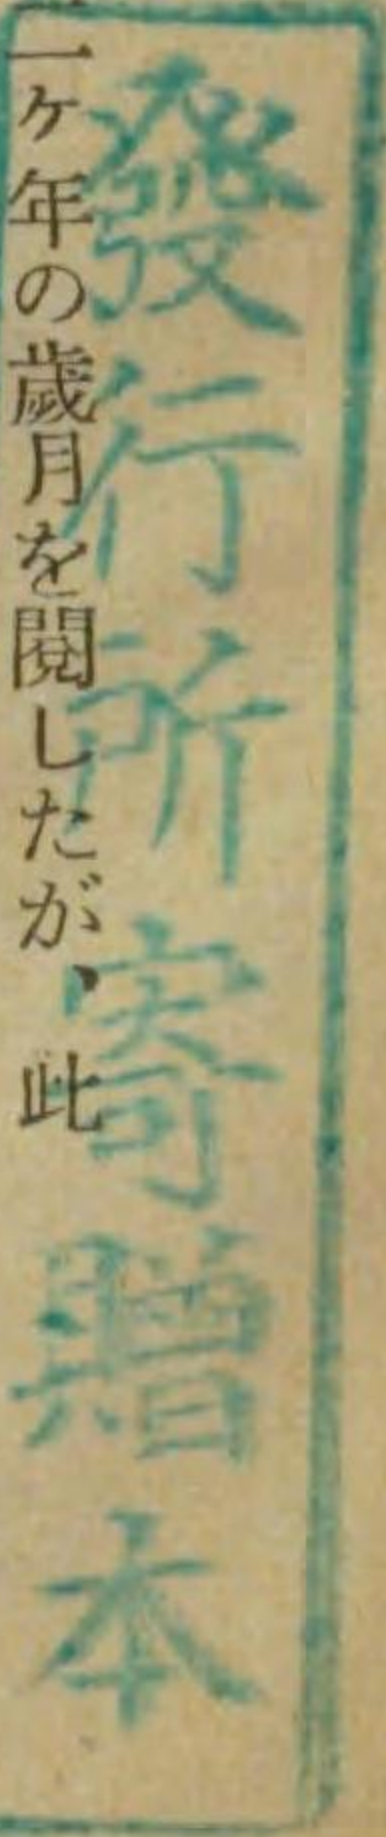 發行所寄贈本
ヶ年の歲月を閱したが、此